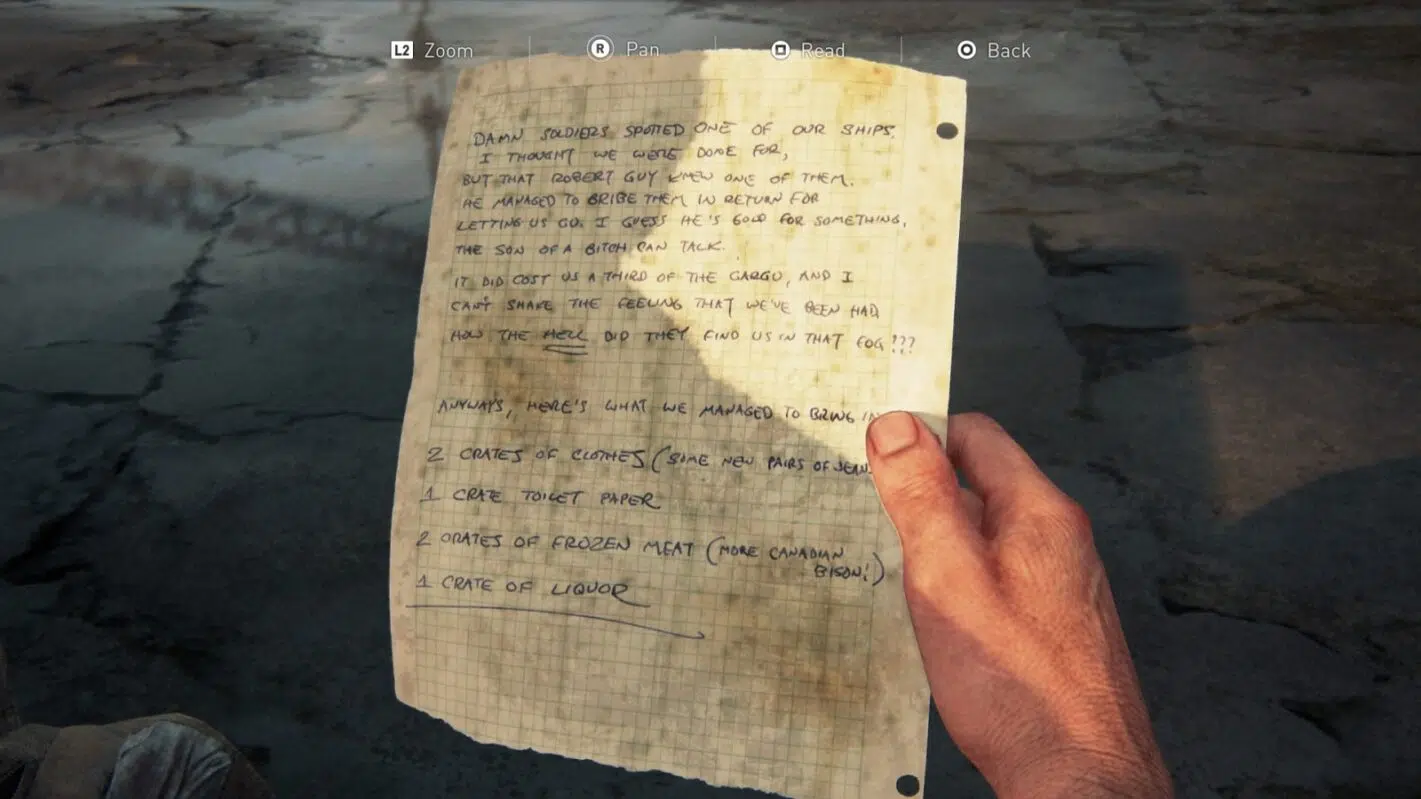 L2 Zoom R Pan Read Back
DAMN SOLDIERS SPOTTED ONE OF OUR SHIPS.
I THOUGHT WE WERE DONE FOR,
BUT THAT ROBERT GUY KNEW ONE OF THEM.
HE MANAGED TO BRIBE THEM IN RETURN FOR
LETTING US GO. I GUESS HE'S GOOD FOR SOMETHING,
THE SON OF A BITCH CAN TALK.
IT DID COST US A THIRD OF THE CARGO, AND I
CAN'T SHAKE THE FEELING THAT WE'VE BEEN HAD
HOW THE HELL DID THEY FIND US IN THAT FOG!??
ANYWAYS, HERE'S WHAT WE MANAGED TO BRING IN
2 CRATES OF CLOTHES (SOME NEW PAIRS OF JEAN
1 CRATE TOILET PAPER
2 CRATES OF FROZEN MEAT (MORE CANADIAN
BISON!)
1 CRATE OF LIQUOR